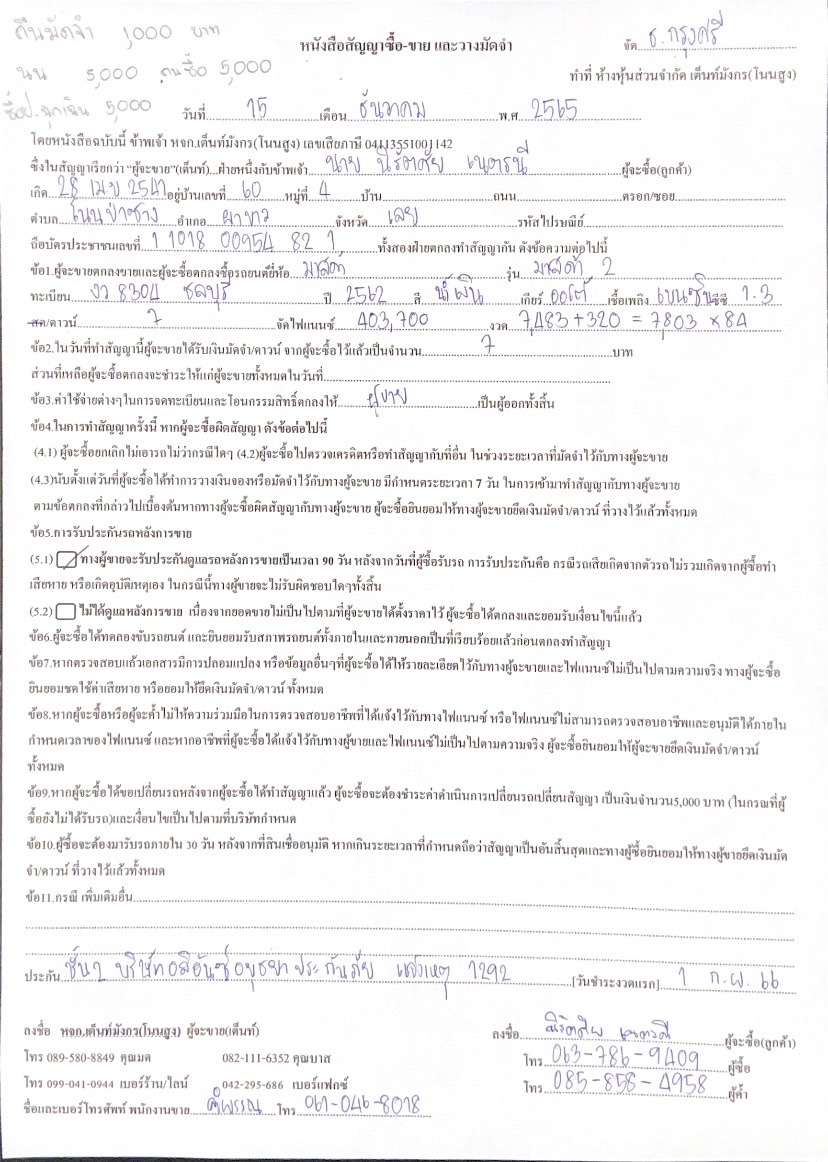 คืนมัดจำ 1,000 บาท
หนังสือสัญญาซื้อ-ขาย และวางมัดจำ
จัด ธ.กรุงศรี
5,000 5,000
ทำที่ ห้างหุ้นส่วนจำกัด เต็นท์มังกร(โนนสูง)
5,000
วันที่ 15 เดือน ธันวาคม พ.ศ 2565
โดยหนังสือฉบับนี้ ข้าพเจ้า หจก.เต็นท์มังกร(โนนสูง) เลขเสียภาษี 04113551001142
ซึ่งในสัญญาเรียกว่า "ผู้จะขาย"(เต็นท์)...ฝ่ายหนึ่งกับข้าพเจ้า นาย ผู้จะซื้อ(ลูกค้า)
เกิด 28 เม.ย 2541 อยู่บ้านเลขที่ 60 หมู่ที่ 4 บ้าน ถนน ตรอก/ซอย
ตำบล โนนป่าซาง อำเภอ ผาขาว จังหวัด เลย รหัสไปรษณีย์
ถือบัตรประชาชนเลขที่ 1 1018 00954 82 1 ทั้งสองฝ่ายตกลงทำสัญญากัน ดังข้อความต่อไปนี้
ข้อ1.ผู้จะขายตกลงขายและผู้จะซื้อตกลงซื้อรถยนต์ยี่ห้อ มาสด้า รุ่น มาสด้า 2
ทะเบียน งว 8304 ชลบุรี ปี 2562 สี น้ำเงิน เกียร์ ออโต้ เชื้อเพลิง เบนซิน ซีซี 1.3
สด/ดาวน์ 7 จัดไฟแนนซ์ 403,700 งวด 7,483 + 320 = 7,803 × 84
ข้อ2.ในวันที่ทำสัญญานี้ผู้จะขายได้รับเงินมัดจำ/ดาวน์ จากผู้จะซื้อไว้แล้วเป็นจำนวน 7 บาท
ส่วนที่เหลือผู้จะซื้อตกลงจะชำระให้แก่ผู้จะขายทั้งหมดในวันที่
ข้อ3.ค่าใช้จ่ายต่างๆในการจดทะเบียนและโอนกรรมสิทธิ์ตกลงให้ ผู้ขาย เป็นผู้ออกทั้งสิ้น
ข้อ4.ในการทำสัญญาครั้งนี้ หากผู้จะซื้อผิดสัญญา ดังข้อต่อไปนี้
(4.1) ผู้จะซื้อยกเลิกไม่เอารถไม่ว่ากรณีใดๆ (4.2)ผู้จะซื้อไปตรวจเครดิตหรือทำสัญญากับที่อื่น ในช่วงระยะเวลาที่มัดจำไว้กับทางผู้จะขาย
(4.3)นับตั้งแต่วันที่ผู้จะซื้อได้ทำการวางเงินจองหรือมัดจำไว้กับทางผู้จะขาย มีกำหนดระยะเวลา 7 วัน ในการเข้ามาทำสัญญากับทางผู้จะขาย
ตามข้อตกลงที่กล่าวไปเบื้องต้นหากทางผู้จะซื้อผิดสัญญากับทางผู้จะขาย ผู้จะซื้อยินยอมให้ทางผู้จะขายยึดเงินมัดจำ/ดาวน์ ที่วางไว้แล้วทั้งหมด
ข้อ5.การรับประกันรถหลังการขาย
(5.1) ทางผู้ขายจะรับประกันดูแลรถหลังการขายเป็นเวลา 90 วัน หลังจากวันที่ผู้ซื้อรับรถ การรับประกันคือ กรณีรถเสียเกิดจากตัวรถไม่รวมเกิดจากผู้ซื้อทำ
เสียหาย หรือเกิดอุบัติเหตุเอง ในกรณีนี้ทางผู้ขายจะไม่รับผิดชอบใดๆทั้งสิ้น
(5.2) ไม่ได้ดูแลหลังการขาย เนื่องจากยอดขายไม่เป็นไปตามที่ผู้จะขายได้ตั้งราคาไว้ ผู้จะซื้อได้ตกลงและยอมรับเงื่อนไขนี้แล้ว
ข้อ6.ผู้จะซื้อได้ทดลองขับรถยนต์ และยินยอมรับสภาพรถยนต์ทั้งภายในและภายนอกเป็นที่เรียบร้อยแล้วก่อนตกลงทำสัญญา
ข้อ7.หากตรวจสอบแล้วเอกสารมีการปลอมแปลง หรือข้อมูลอื่นๆที่ผู้จะซื้อได้ให้รายละเอียดไว้กับทางผู้จะขายและไฟแนนซ์ไม่เป็นไปตามความจริง ทางผู้จะซื้อ
ยินยอมชดใช้ค่าเสียหาย หรือยอมให้ยึดเงินมัดจำ/ดาวน์ ทั้งหมด
ข้อ8.หากผู้จะซื้อหรือผู้จะค้ำไม่ให้ความร่วมมือในการตรวจสอบอาชีพที่ได้แจ้งไว้กับทางไฟแนนซ์ หรือไฟแนนซ์ไม่สามารถตรวจสอบอาชีพและอนุมัติได้ภายใน
กำหนดเวลาของไฟแนนซ์ และหากอาชีพที่ผู้จะซื้อได้แจ้งไว้กับทางผู้ขายและไฟแนนซ์ไม่เป็นไปตามความจริง ผู้จะซื้อยินยอมให้ผู้จะขายยึดเงินมัดจำ/ดาวน์
ทั้งหมด
ข้อ9.หากผู้จะซื้อได้ขอเปลี่ยนรถหลังจากผู้จะซื้อได้ทำสัญญาแล้ว ผู้จะซื้อจะต้องชำระค่าดำเนินการเปลี่ยนรถเปลี่ยนสัญญา เป็นเงินจำนวน5,000 บาท (ในกรณที่ผู้
ซื้อยังไม่ได้รับรถ)และเงื่อนไขเป็นไปตามที่บริษัทกำหนด
ข้อ10.ผู้ซื้อจะต้องมารับรถภายใน 30 วัน หลังจากที่สินเชื่ออนุมัติ หากเกินระยะเวลาที่กำหนดถือว่าสัญญาเป็นอันสิ้นสุดและทางผู้ซื้อยินยอมให้ทางผู้ขายยึดเงินมัด
จำ/ดาวน์ ที่วางไว้แล้วทั้งหมด
ข้อ11.กรณี เพิ่มเติมอื่น
ประกัน ชั้น2 บริษัท อลิอันซ์อยุธยา ประกันภัย แจ้งเหตุ 1292 [วันชำระงวดแรก] 1 ก.พ. 66
ลงชื่อ หจก.เต็นท์มังกร(โนนสูง) ผู้จะขาย(เต็นท์) ลงชื่อ ผู้จะซื้อ(ลูกค้า)
โทร 089-580-8849 คุณมด 082-111-6352 คุณบาส โทร 063-786-9409 ผู้ซื้อ
โทร 099-041-0944 เบอร์ร้าน/ไลน์ 042-295-686 เบอร์แฟกซ์ โทร 085-858-4958 ผู้ค้ำ
ชื่อและเบอร์โทรศัพท์ พนักงานขาย โทร 061-046-8018